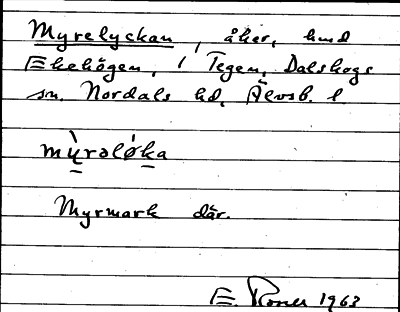 Myrelyckan, åker, hmd
Ekehögen, 1 Tegen, Dalskogs
sn. Nordals hd, Älvsb. l
mỳrəløka
Myrmark där.
E. 1963